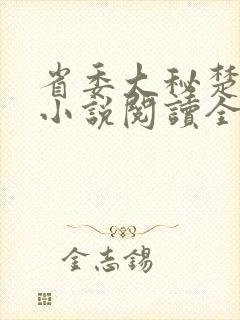 省委大秘楚
小说閱讀全
金志錫